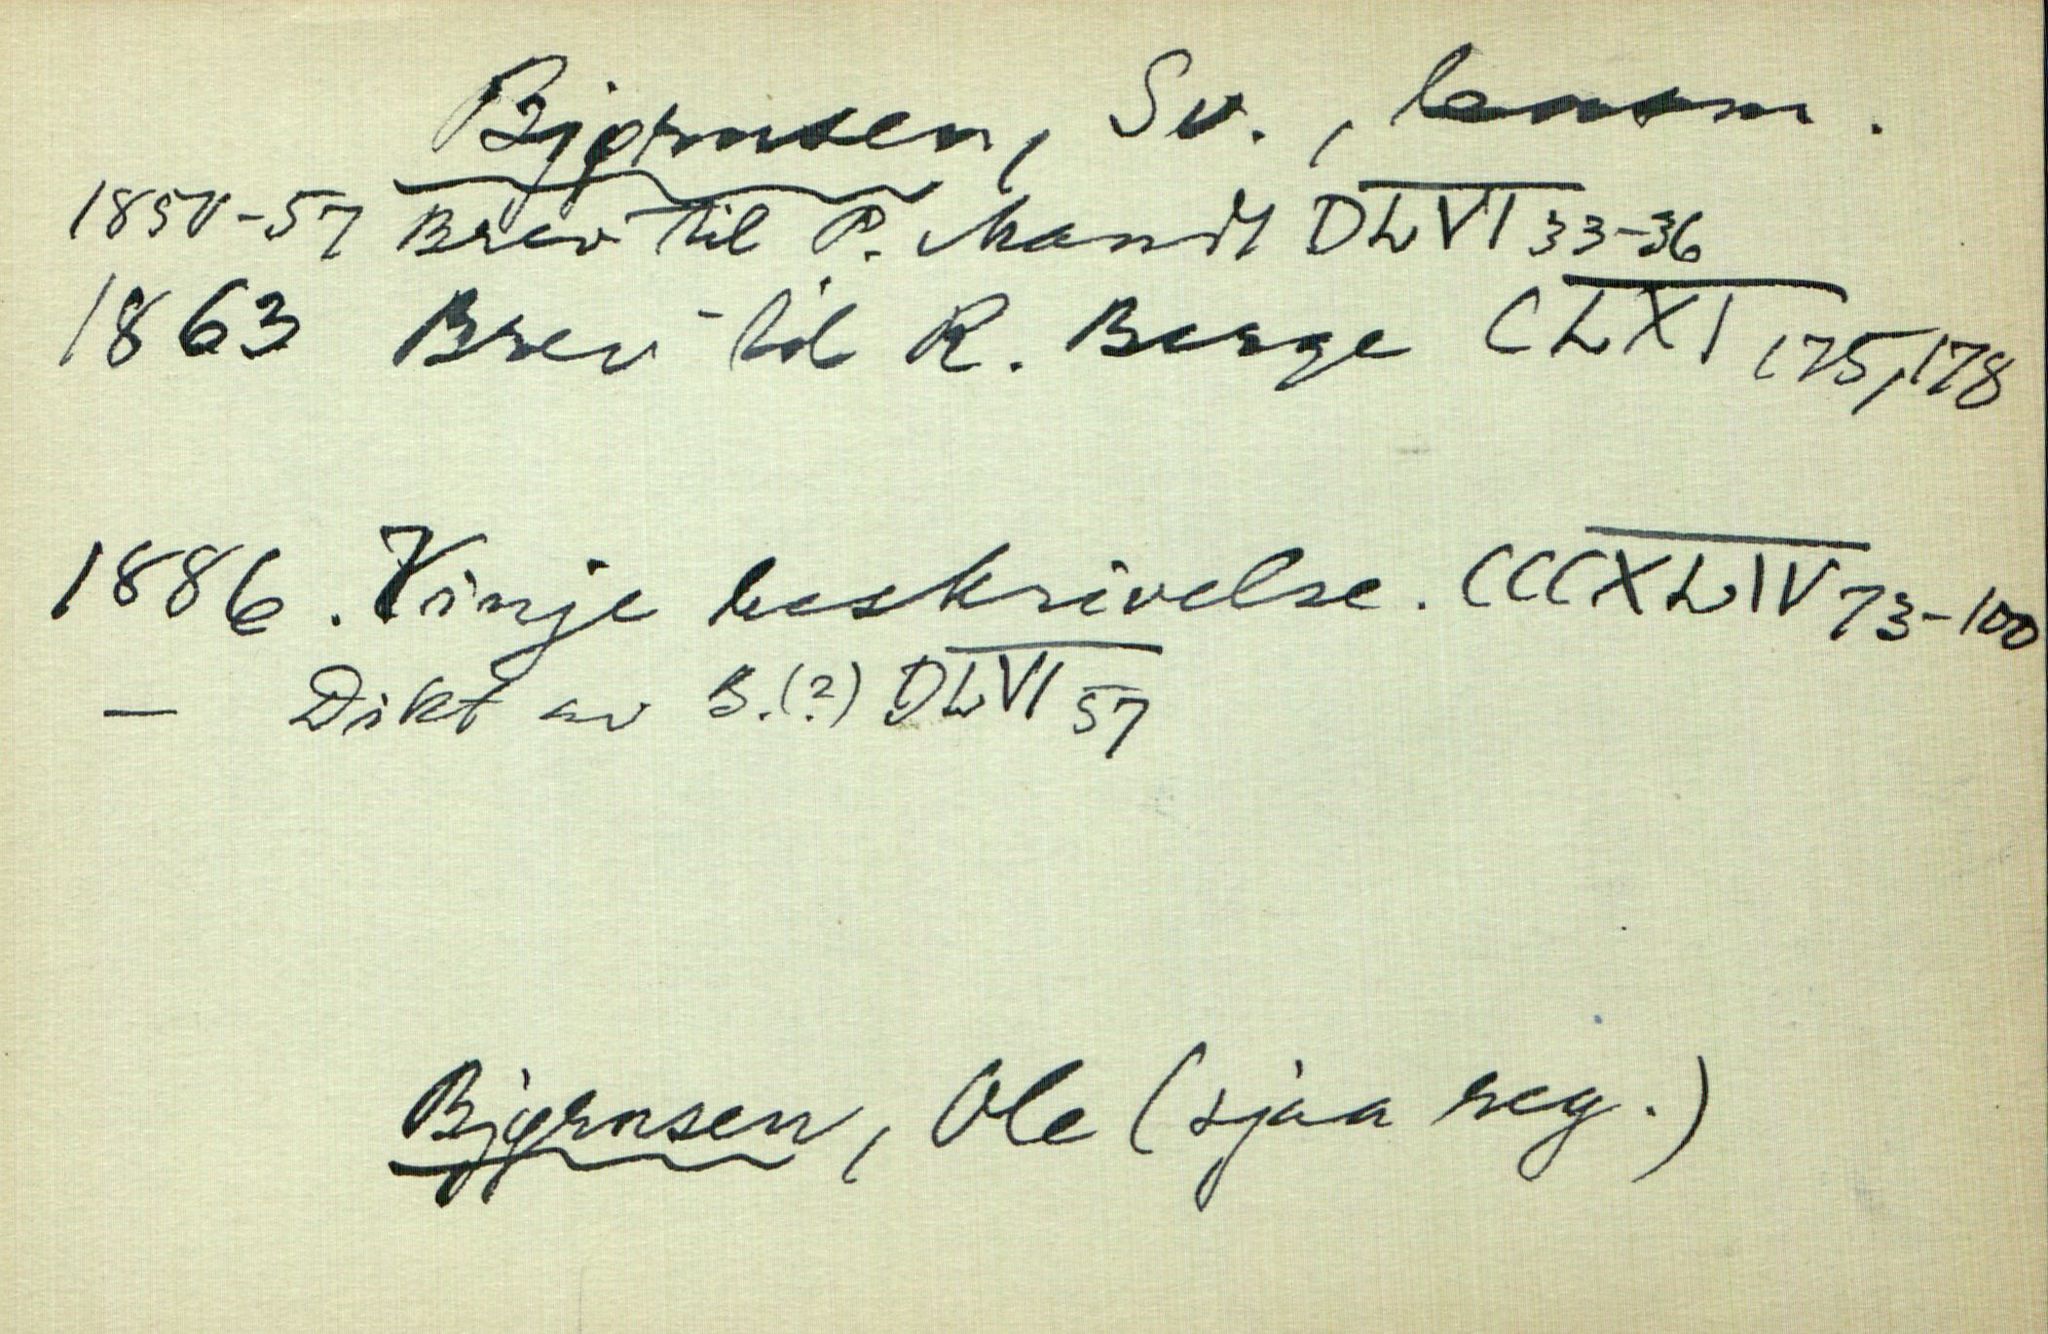 Bjørnsen, Sv., lensm.
1850-57 Brev til P. Mandt DLVI 33-36
1863 Brev til R. Berge CLXI 175, 178
1886. Vinje beskrivelse. CCCXLIV 73-100
— Dikt av B.(?) DLVI 57
Bjørnsen, Ole (sjaa reg.)